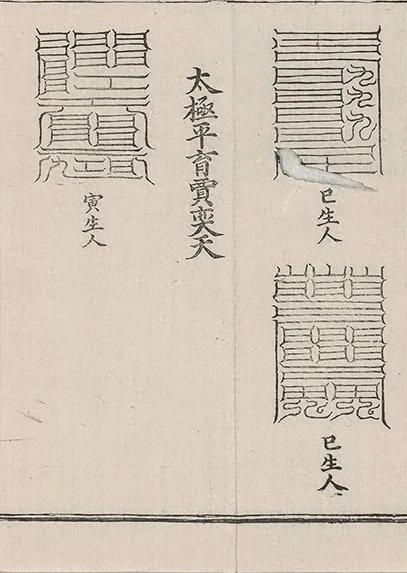 巳生人
巳生人
太極平育賈奕天
寅生人